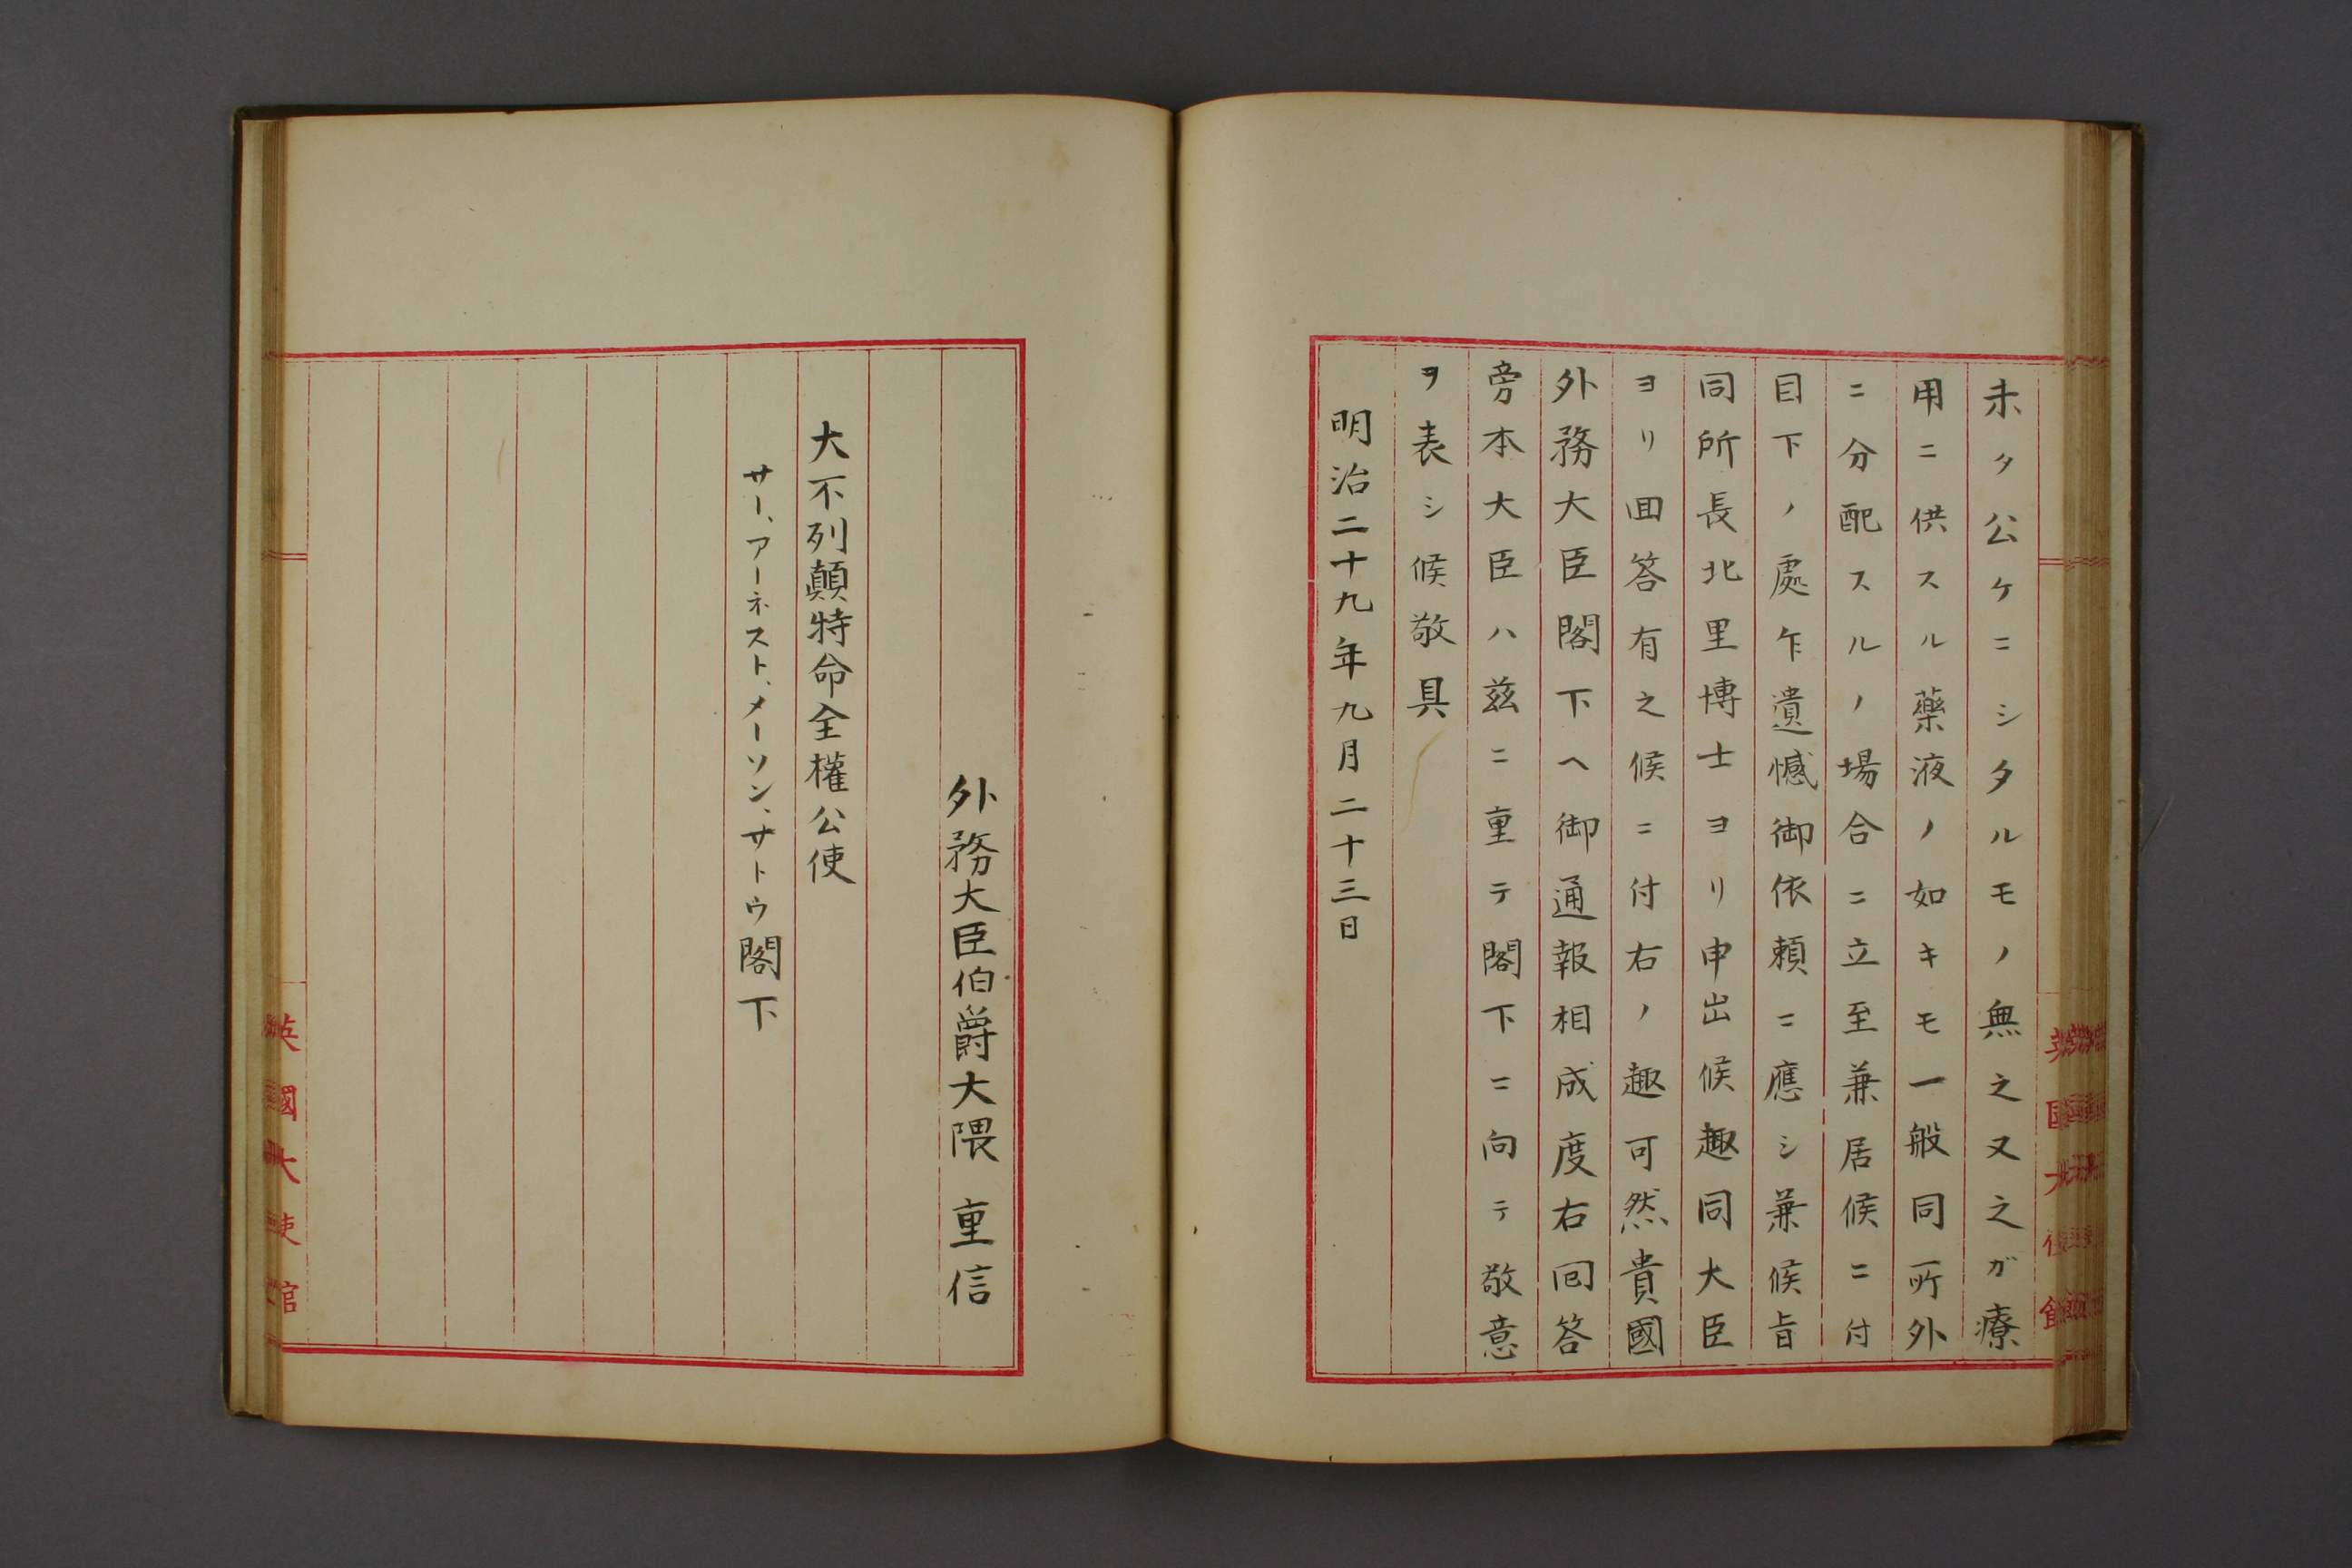 未タ公ケニシタルモノ無之又之ガ療
用ニ供スル藥液ノ如キモ一般同所外
ニ分配スルノ場合ニ立至兼居候ニ付
目下ノ處乍遺憾御依頼ニ應シ兼候旨
同所長北里博士ヨリ申出候趣同大臣
ヨリ回答有之候ニ付右ノ趣可然貴國
外務大臣閣下ヘ御通報相成度右回答
旁本大臣ハ茲ニ重テ閣下ニ向テ敬意
ヲ表シ候敬具
明治二十九年九月二十三日
外務大臣伯爵大隈重信
大不列顛特命全權公使
サー、アーネスト、メーソン、サトウ閣下
英國大使館